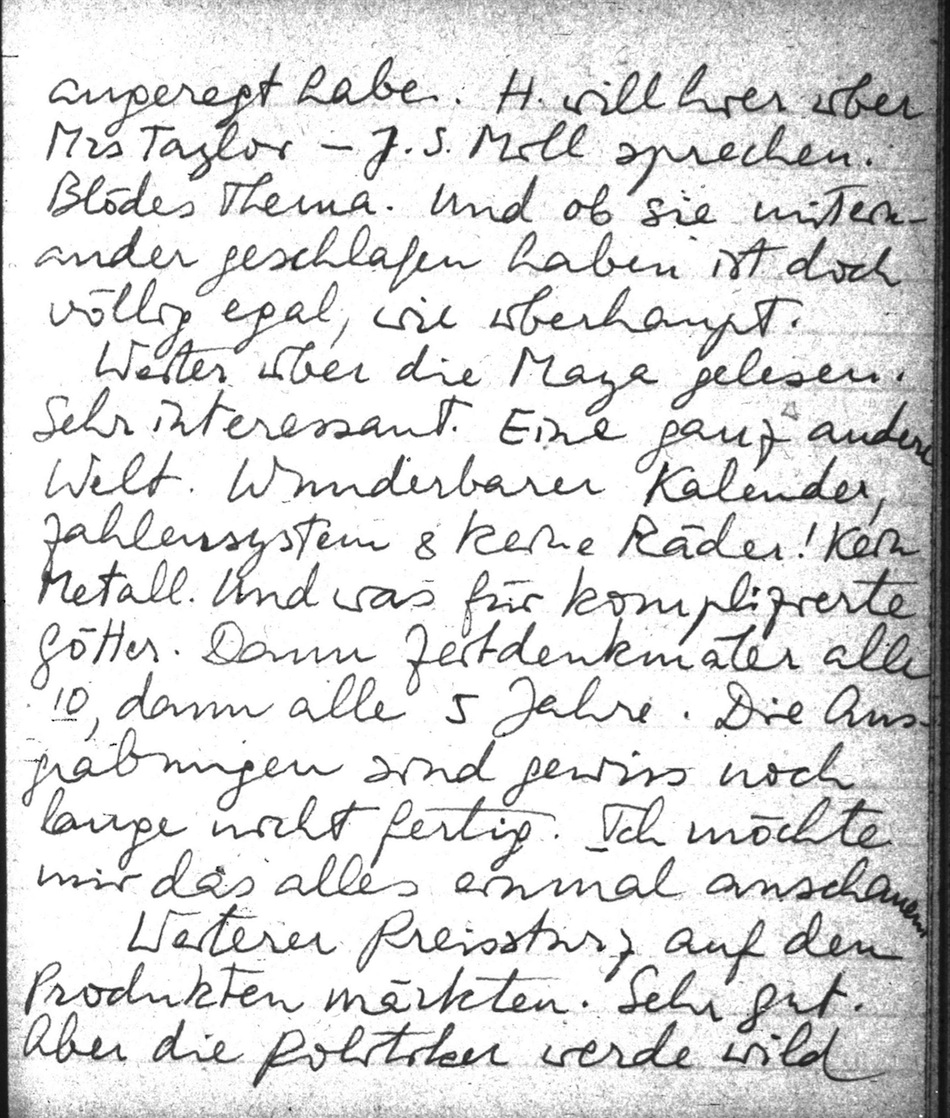 angeregt habe. H. will hier über
Mrs Taylor – J. S. Mill sprechen.
Blödes Thema. Und ob sie mitein-
ander geschlafen haben ist doch
völlig egal, wie überhaupt.
Weiter über die Maya gelesen.
Sehr interessant. Eine ganz andere
Welt. Wunderbarer Kalender,
Zahlensystem & keine Räder! Kein
Metall. Und was für komplizierte
Götter. Dann Zeitdenkmäler alle
10, dann alle 5 Jahre. Die Aus-
grabungen sind gewiss noch
lange nicht fertig. Ich möchte
mir das alles einmal anschauen
Weiterer Preissturz auf den
Produktenmärkten. Sehr gut.
Aber die Politiker werde wild